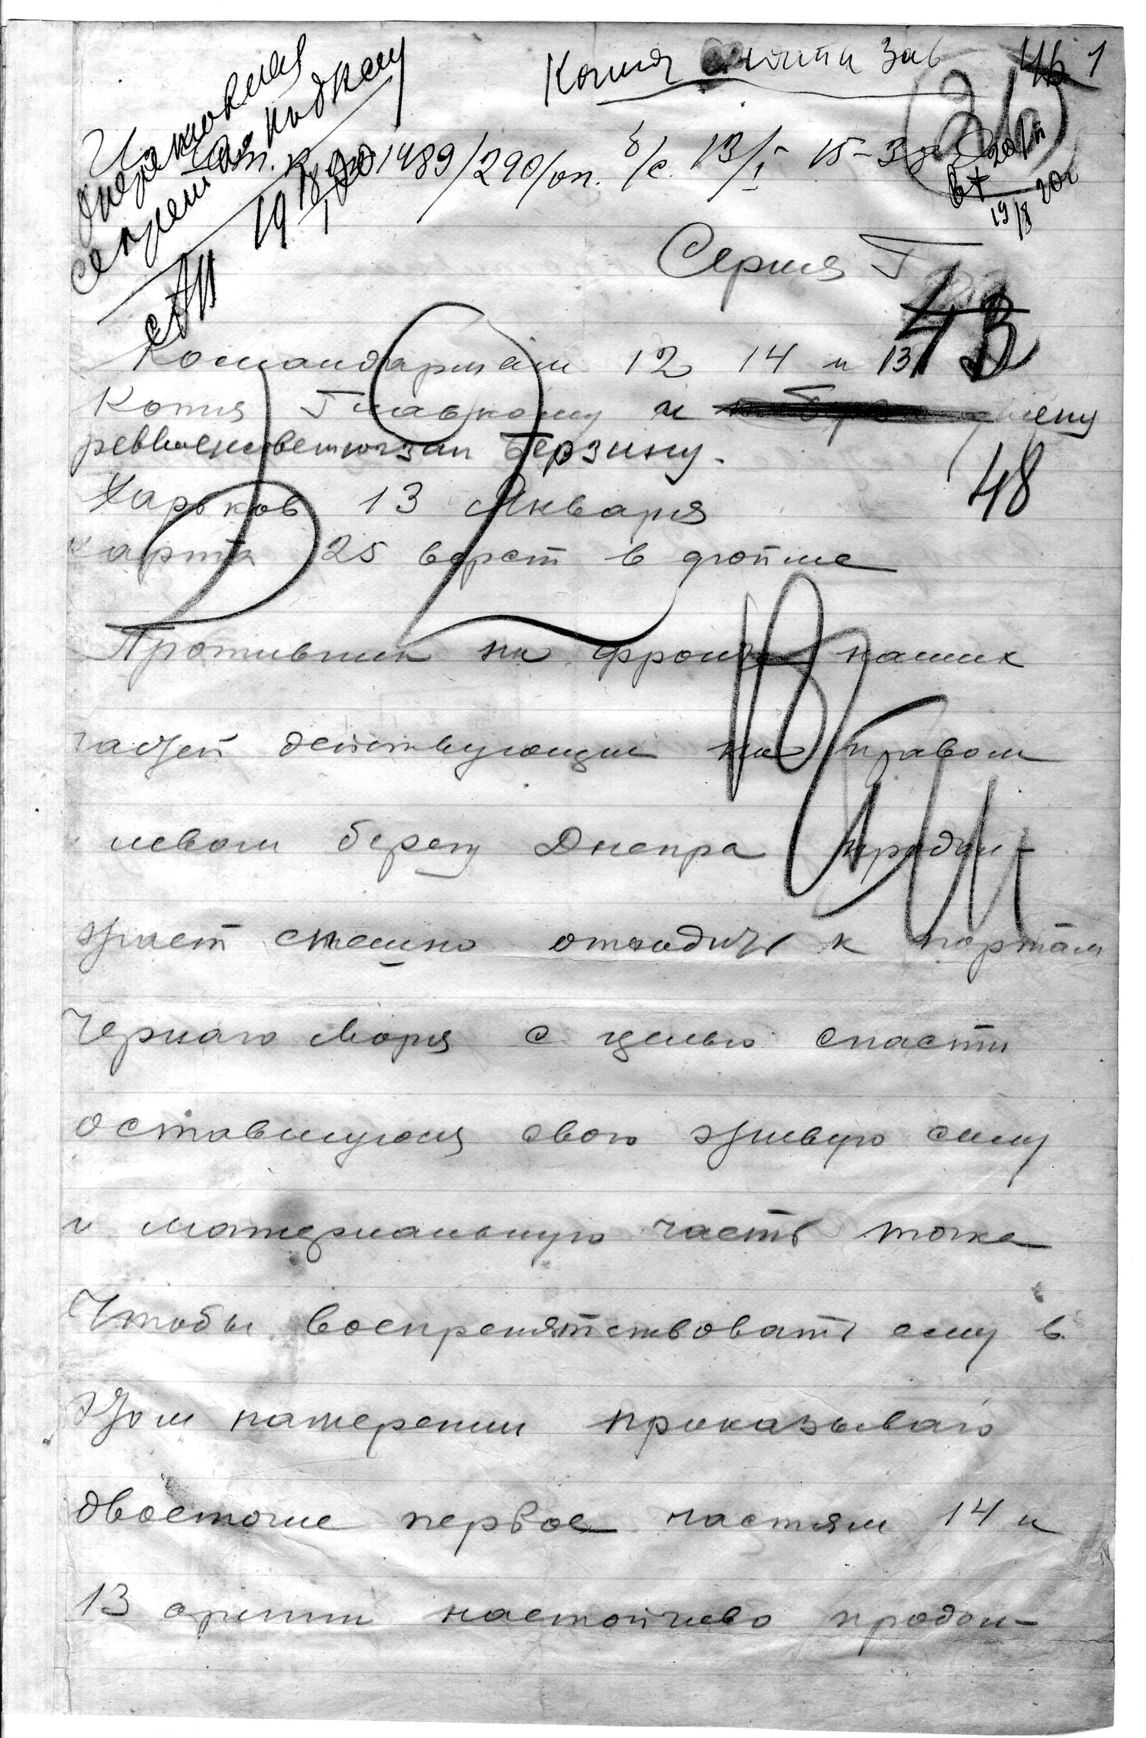 Копия снята Зав
1
Оперативная
секретная
1489/290/оп. б/с. 13/I 15-38
19/8 20г
Серия Г
43
Командармам 12 14 и 13
Копия Главкому и члену
реввоенсоветюгзап Берзину.
48
Харьков 13 Января
карта 25 верст в дюйме
Противник на фронте наших
частей действующих на правом
левом берегу Днепра продол-
жает спешно отходить к портам
Чернаго Моря с целью спасти
оставшуюся свою живую силу
и материальную часть точка
Чтобы воспрепятствовать ему в
этом намерении приказываю
двоеточие первое частям 14 и
13 армии настойчиво продол-